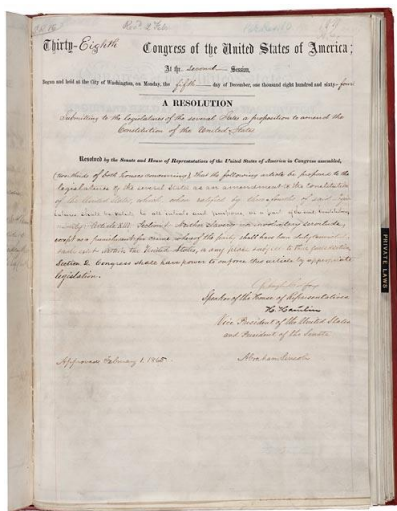 Thirty-Eighth Congress of the United States of America;
At the second Session,
Begun and held at the city of Washington, on Monday, the fifth day of December, one thousand eight hundred and sixty-four
A RESOLUTION
Submitting to the legislatures of the several States a proposition to amend the
Constitution of the United States
Resolved by the Senate and House of Representatives of the United States of America in Congress assembled,
(two thirds of both houses concurring,) that the following article be proposed to the
legislatures of the several States as an amendment to the constitution
of the United States, which, when ratified by three fourths of said
Legislatures shall be valid, to all intents and purposes, as a part of the said Constitution,
namely: Article XIII. Section 1. Neither slavery nor involuntary servitude,
except as a punishment for crime whereof the party shall have been duly convicted,
shall exist within the United States, or any place subject to their jurisdiction.
Section 2. Congress shall have power to enforce this article by appropriate
legislation.
Speaker of the House of Representatives
H. Hamlin
Vice President of the United States
and President of the Senate
Approved February 1. 1865
Abraham Lincoln
PRIVATE LAWS